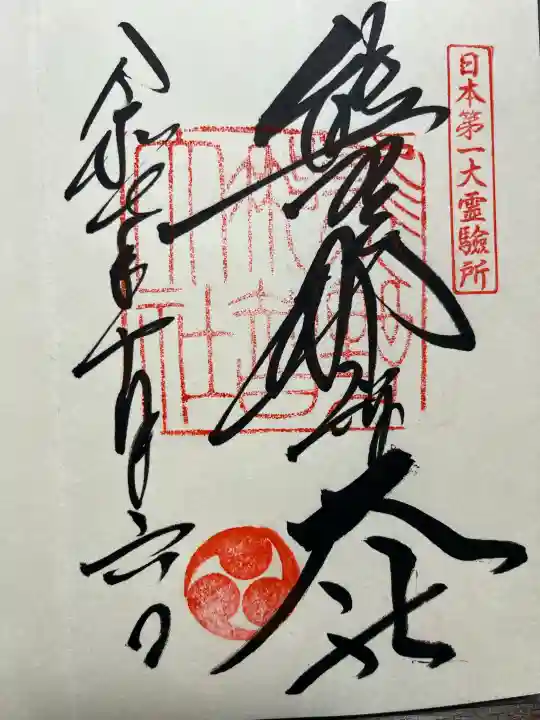 日本第一大霊驗所
熊野那智大社
令和七年十月六日